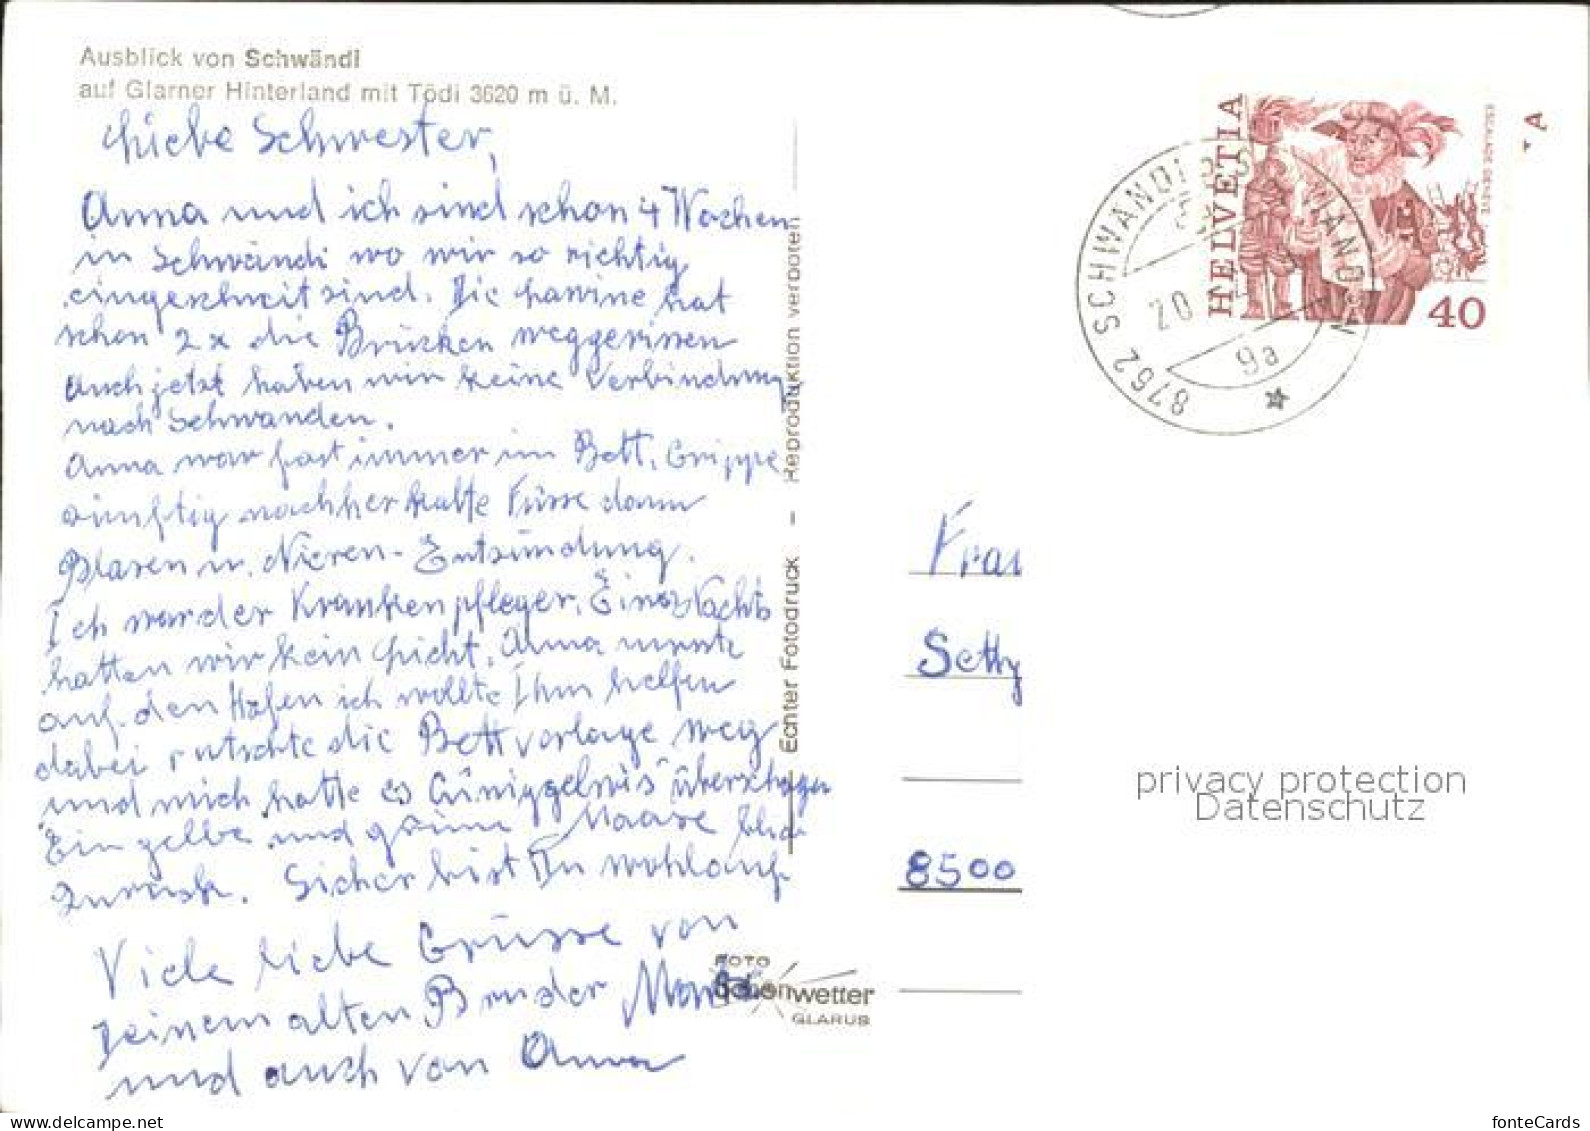 Ausblick von Schwändi
auf Glarner Hinterland mit Tödi 3620 m ü. M.
Liebe Schwester,
Anna und ich sind schon 4 Wochen
in Schwändi wo wir so richtig
eingeschneit sind. Die Lawine hat
schon 2x die Brücken weggerissen
Auch jetzt haben wir keine Verbindung
nach Schwanden.
Anna war fast immer im Bett, Grippe
nachher kalte Füsse dann
Blasen u. Nieren-Entzündung.
Ich war der Krankenpfleger. Eines Nachts
hatten wir kein Licht. Anna musste
auf den Hafen ich wollte Ihr helfen
dabei rutschte die Bettvorlage weg
und mich hatte es überschlagen
Ein gelbe und grüne Naase blieb
zurück. Sicher bist Du wohlauf
Viele liebe Grüsse von
Deinem alten Bruder
und auch von Anna
Echter Fotodruck – Reproduktion verboten
FOTO
Schönwetter
GLARUS
HELVETIA
ESCALADE GENÈVE
40
8762 SCHWÄNDI B. SCHWANDEN
20
9a
A
Frau
Setty
8500
privacy protection
Datenschutz
www.delcampe.net
fonteCards